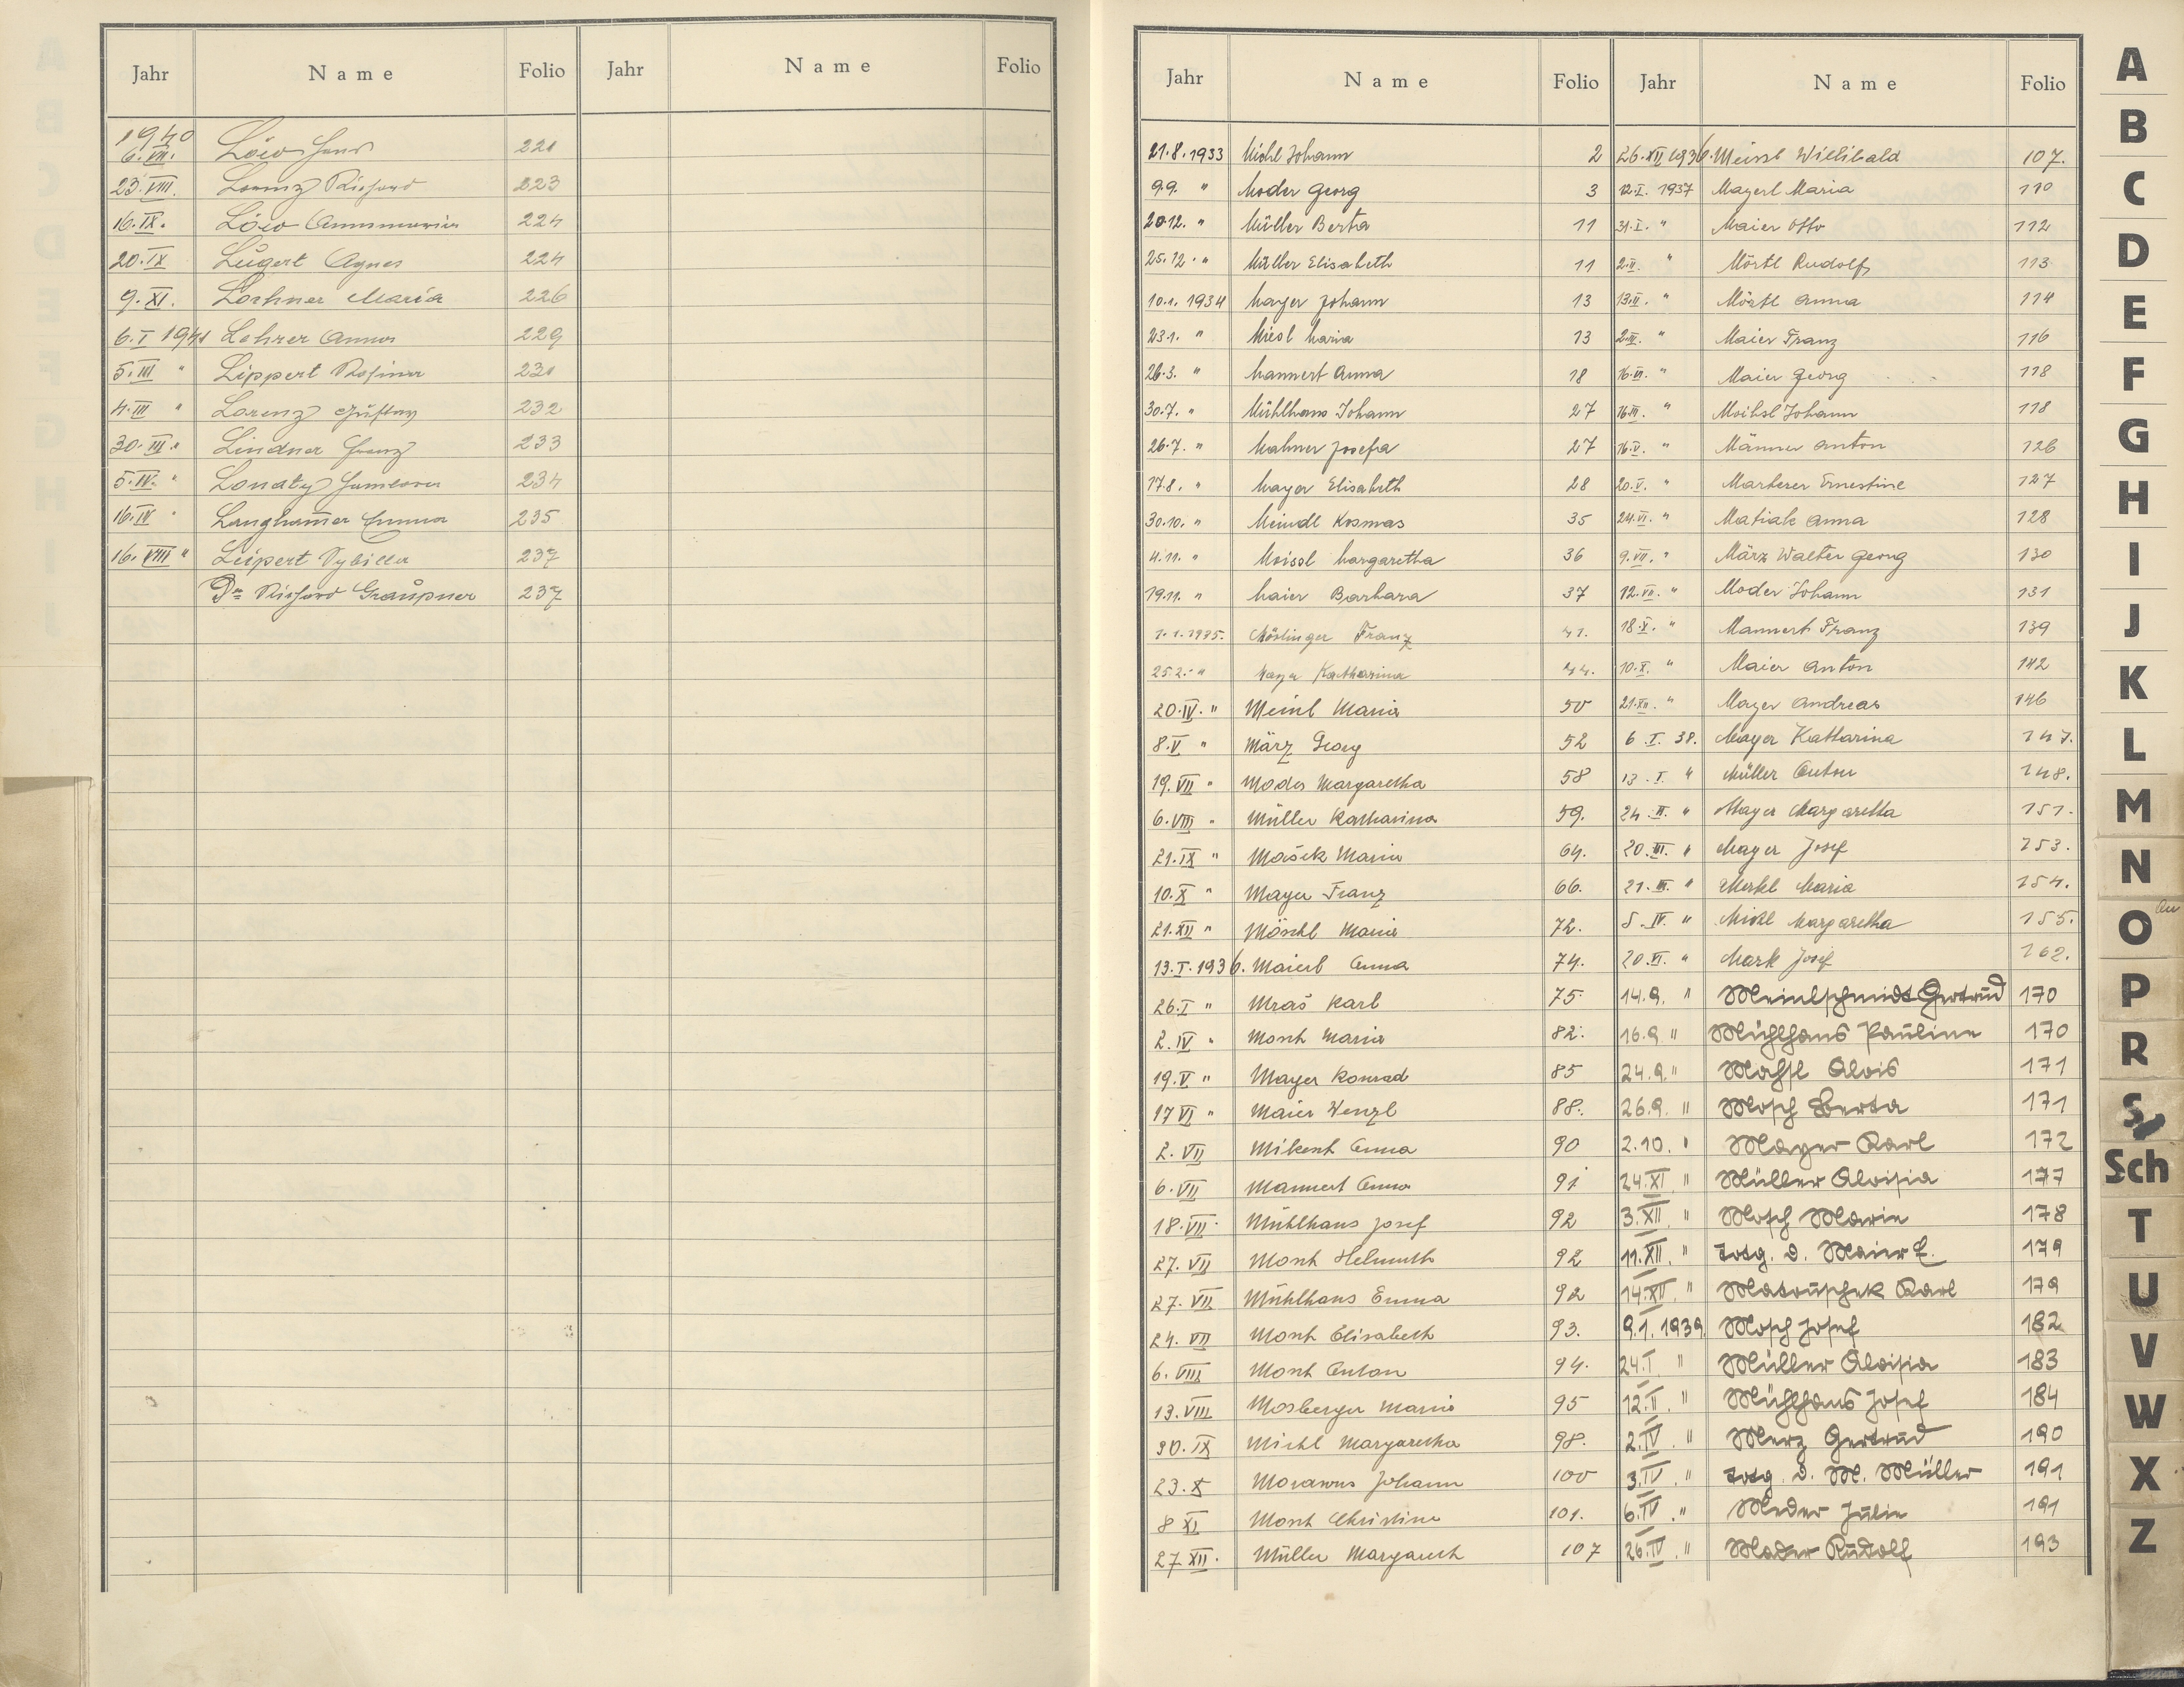 Jahr Name Folio Jahr Name Folio
1940
6.VII. Löw Hans 221
23.VIII. Lorenz Richard 223
16.IX. Löw Annamaria 224
20.IX Lugert Agnes 224
9.XI. Lochner Maria 226
6.I 1941 Lehrer Anna 229
5.III " Lippert Rosina 231
4.III " Lorenz Gustav 232
30.III. " Lindner Franz 233
5.IV. " 234
16.IV " Langhamer Emma 235
16.VIII " Leipert Sybilla 237
Dr Richard Graupner 237
Jahr Name Folio
21.8.1933 Michl Johann 2
9.9. " Moder Georg 3
20.12. " Müller Berta 11
25.12. " Müller Elisabeth 11
10.1.1934 Mayer Johann 13
23.1. " Miesl Maria 13
26.3. " Mannert Anna 18
30.7. " Mühlhans Johann 27
26.7. " Mahner Josefa 27
17.8. " Mayer Elisabeth 28
30.10. " Meindl Kosmas 35
4.11. " Moissl Margaretha 36
19.11. " Maier Barbara 37
1.1.1935. Möslinger Franz 41.
25.2. " Mayer Katharina 44.
20.IV. " Meinl Maria 50
8.V " März Georg 52
19.VII " Moder Margaretha 58
6.VIII " Müller Katharina 59.
21.IX " Mašek Maria 64.
10.X " Mayer Franz 66.
21.XII " Möschl Maria 72.
13.I.1936. Maierl Anna 74.
26.I " Mraš Karl 75
2.IV " Mosch Maria 82.
19.V " Mayer Konrad 85
17 VI " Maier Wenzl 88.
2. VII Anna 90
6.VII Mannert Anna 91
18.VII. Mühlhans Josef 92
27. VII Mosch Helmuth 92
27. VII Mühlhans Emma 92
24. VII Mosch Elisabeth 93.
6. VIII Mosch Anton 94.
13.VIII Mosberger Maria 95
30. IX Michl Margaretha 98.
23. X Morawus Johann 100
8 XI Mosch Christina 101.
27 XII. Müller Margareth 107
Jahr Name Folio
26.XII 1936. Meissl Willibald 107.
12.I. 1937 Mayerl Maria 110
31.I. " Maier Otto 112
2.II. " Mörtl Rudolf 113
13.II. " Mörtl Anna 114
2.III. " Maier Franz 116
16.III. " Maier Georg 118
16.III. " Moihsl Johann 118
16.V. " Männer Anton 126
20.V. " Marterer Ernestine 127
24.VI. " Matiak Anna 128
9.VII. " März Walter Georg 130
12.VII. " Moder Johann 131
18.X. " Mannert Franz 139
10.X. " Maier Anton 142
21.XII. " Mayer Andreas 146
6.I. 38. Mayer Katharina 147.
13.I. " Müller Anton 148.
24.II. " Mayer Margaretha 151.
20.III. " Mayer Josef 153.
21.III. " Merkl Maria 154.
5.IV. " Michl Margaretha 155.
20.VI. " Mark Josef 162.
14.9. " Meinlschmidt Gertrud 170
16.9 " Mühlhans Pauline 170
24.9. " Mohsl Alois 171
26.9. " Mosch Berta 171
2.10. " Mayer Karl 172
24.XI " Müller Aloisia 177
3.XII. " Mosch Marie 178
11.XII. " Totg. d. Maier E. 179
14.XII. " Matouschek Karl 179
9.1.1939. Mosch Josef 182
24.I " Müller Aloisia 183
12.II. " Mühlhans Josef 184
2.IV. " Merz Gertrud 190
3.IV. " Totg. d. M. Müller 191
6.IV. " Meder Julie 191
26.IV. " Mader Rudolf 193
A
B
C
D
E
F
G
H
I
J
K
L
M
N
O
P
R
S
Sch
T
U
V
W
X
Z